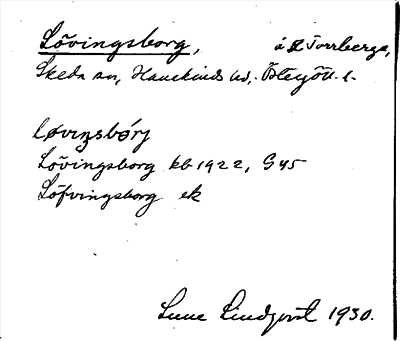 Lövingsborg, å St Torrberga,
Skeda sn, Hanekinds hd, Östergötl. l.
løviŋsbórj
Lövingsborg kb 1922, G45
Löfvingsborg ek
Sune Lindqvist 1930.